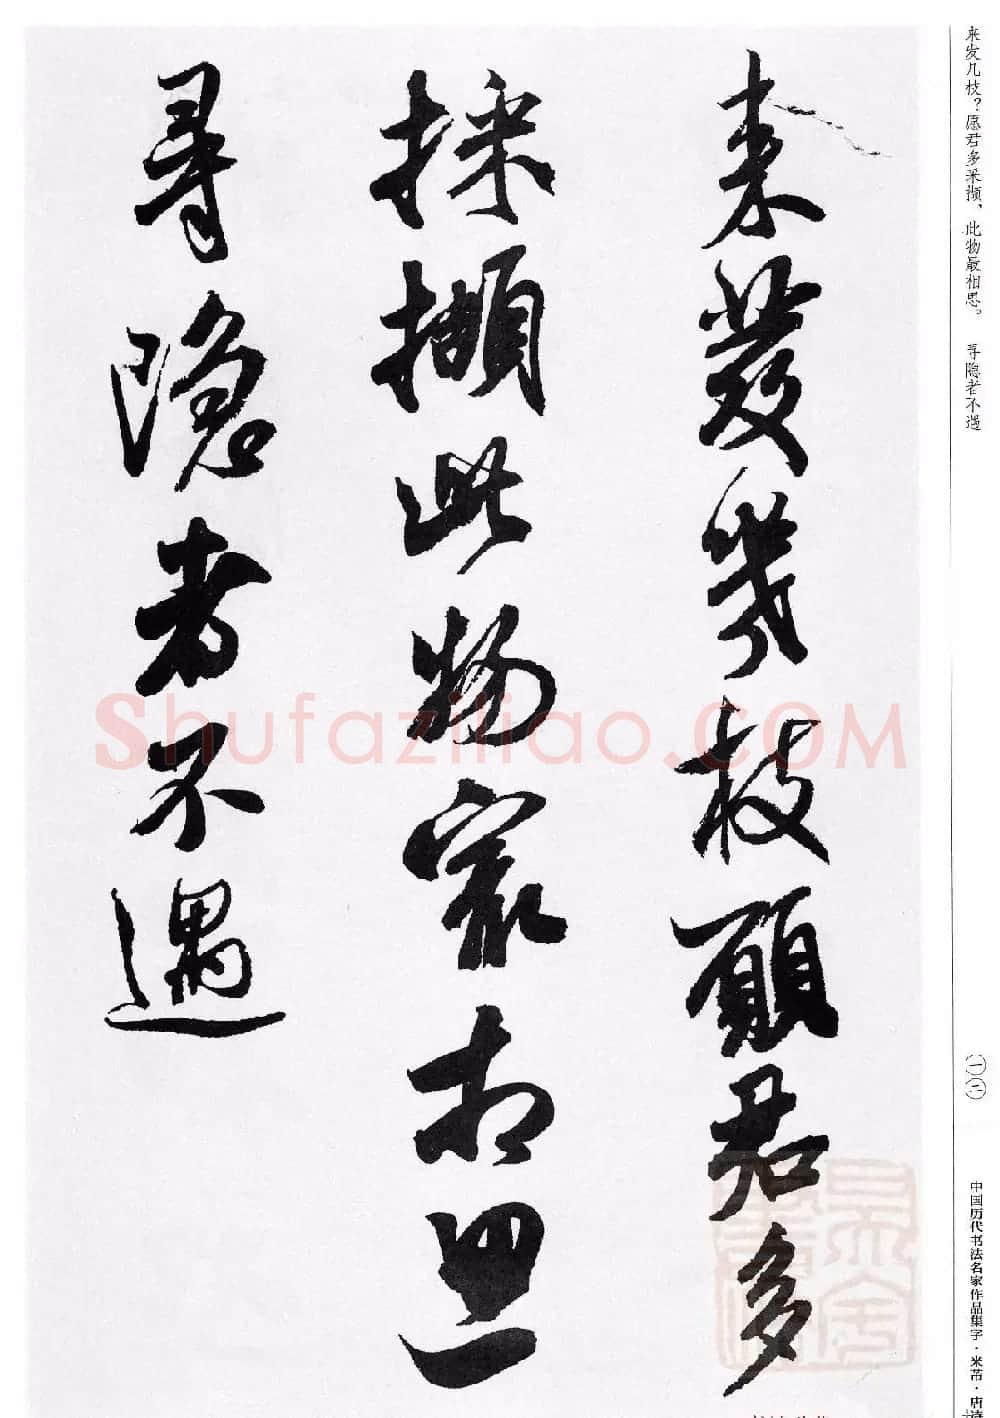 来發幾枝願君多
採擷此物寂相思
尋隱者不遇
来发几枝？愿君多采撷，此物最相思。 寻隐者不遇
一一
中国历代书法名家作品集字·米芾·唐诗
Shufaziliao.COM